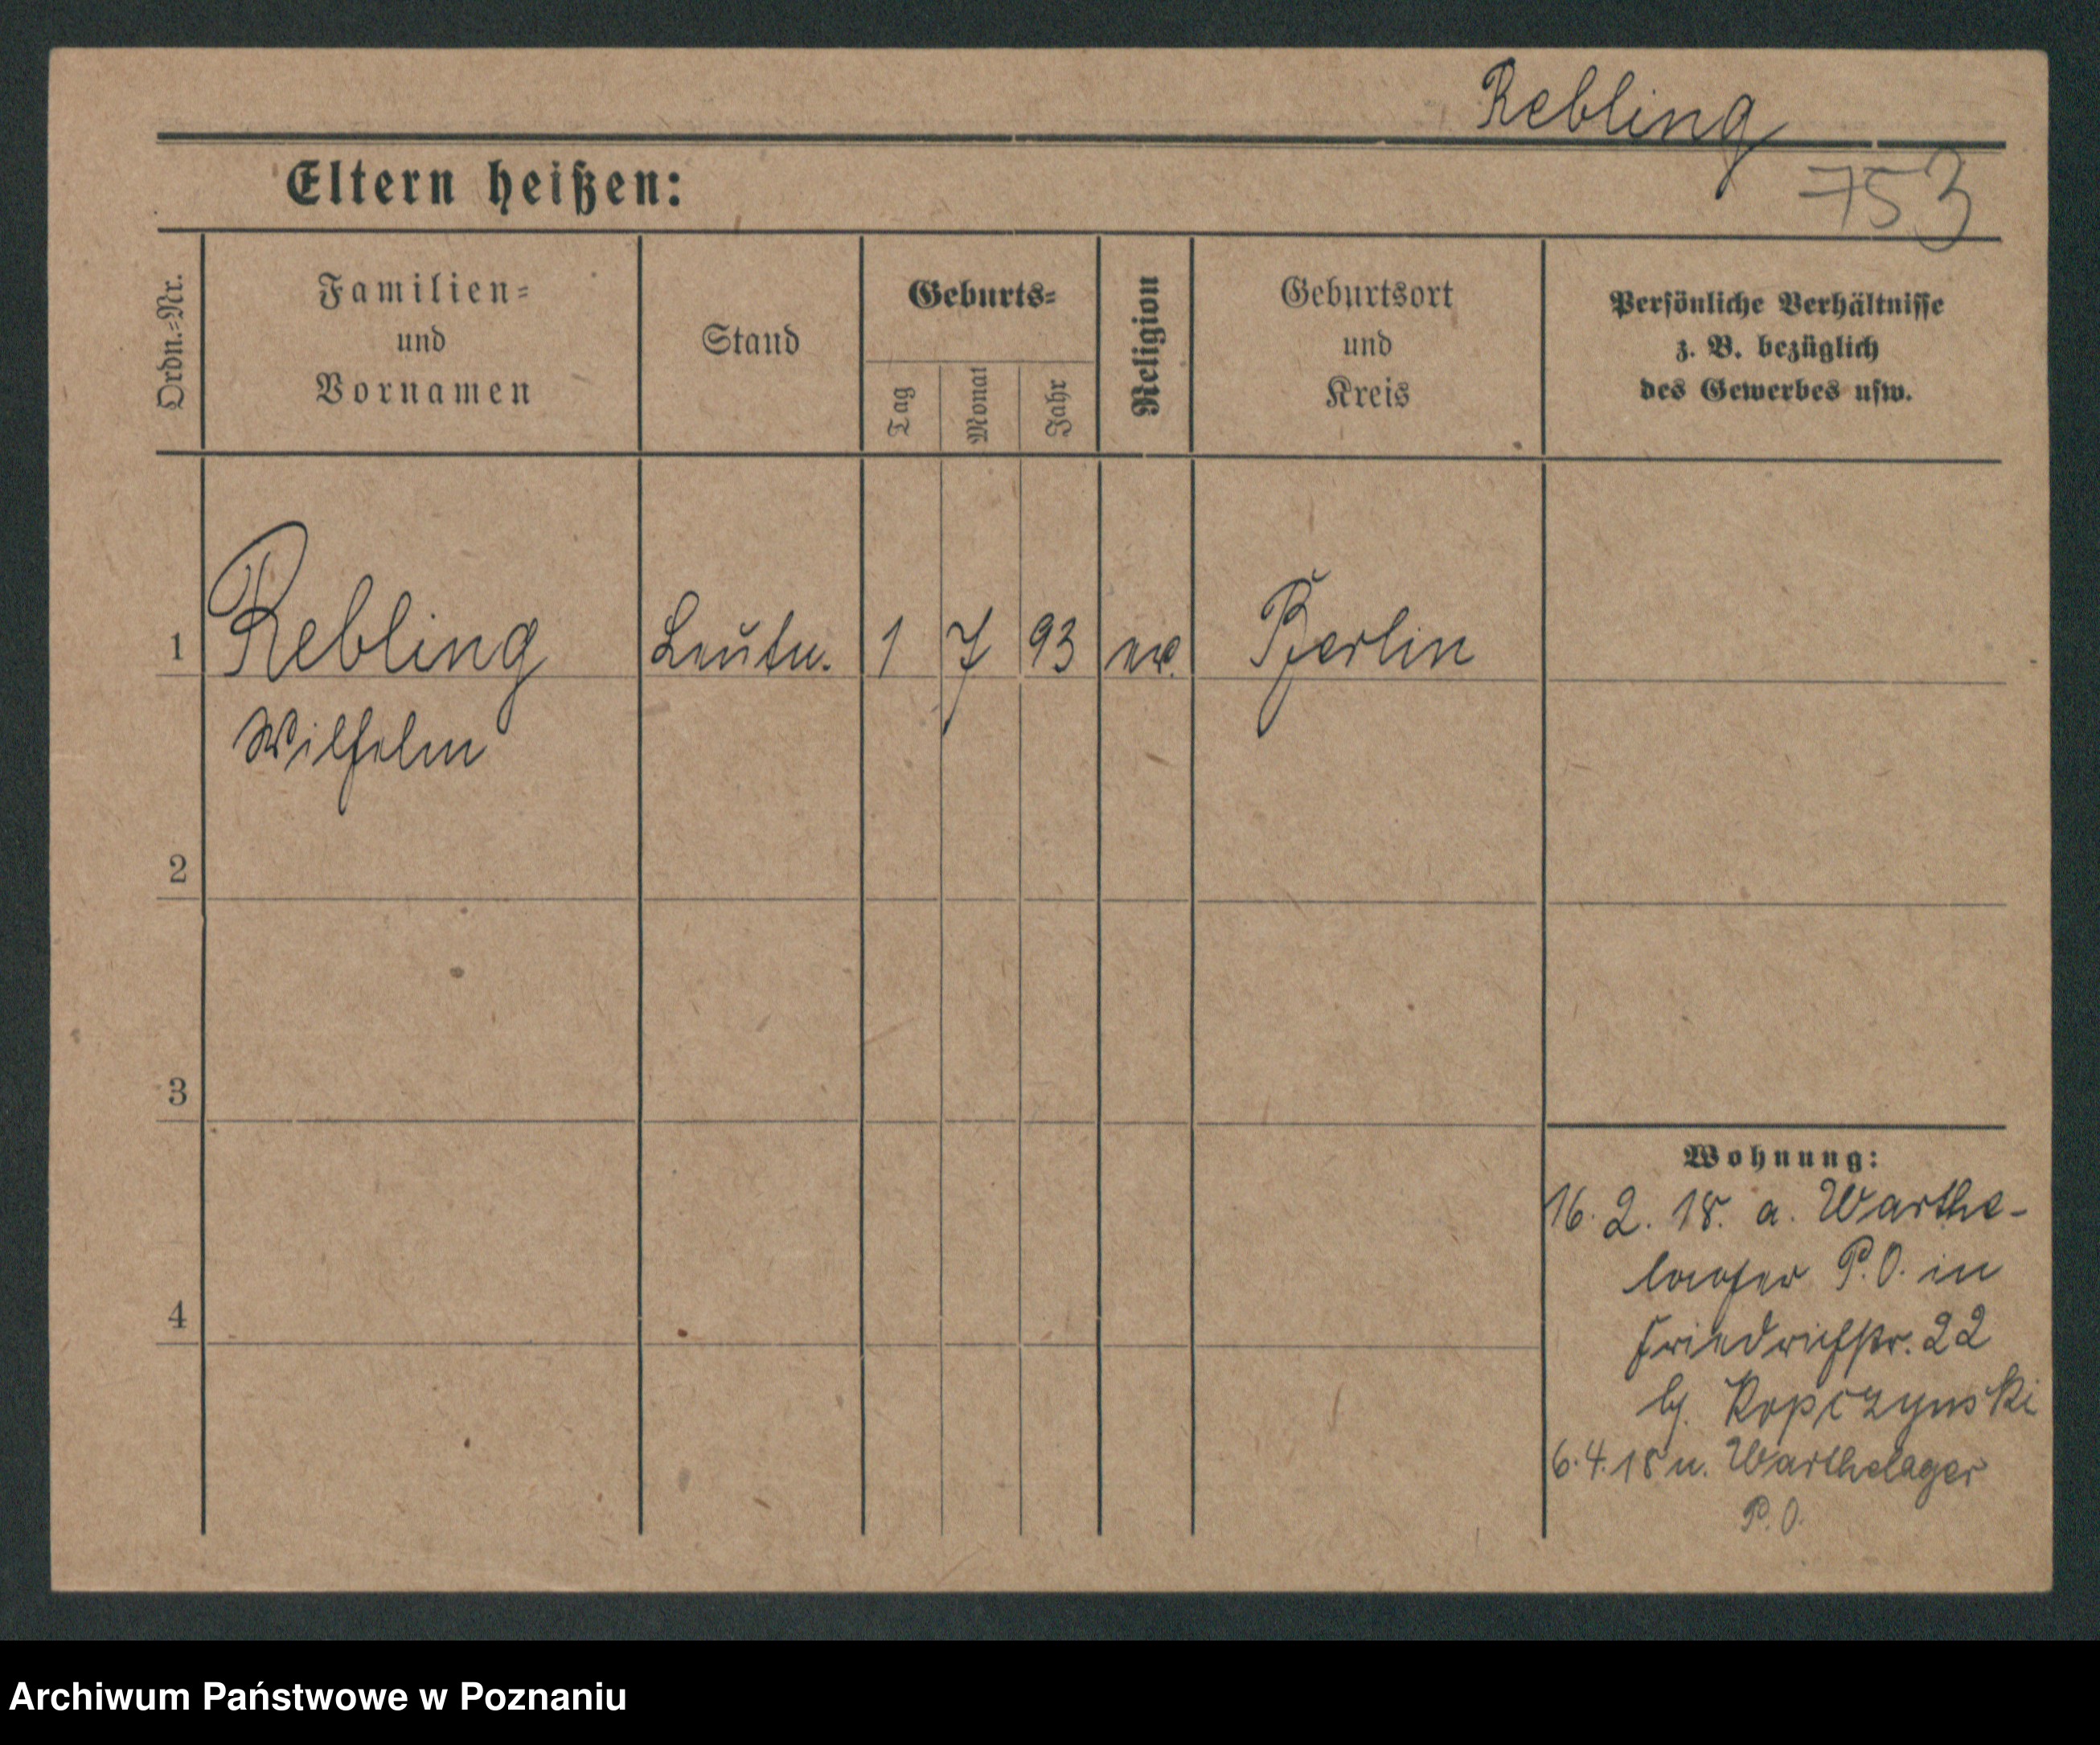 Rebling
753
Eltern heißen:
Ordn.=Nr.
Familien=
und
Vornamen
Stand
Geburts=
Tag
Monat
Jahr
Religion
Geburtsort
und
Kreis
Persönliche Verhältnisse
z. B. bezüglich
des Gewerbes usw.
1 Rebling Leutn. 1 7 93 ev. Berlin
Wilhelm
2
3
4
Wohnung:
16. 2. 18. a. Warthe-
lager P.O. in
Friedrichstr. 22
bj. Kopczynski
6.4.18 n. Warthelager
P.O.
Archiwum Państwowe w Poznaniu